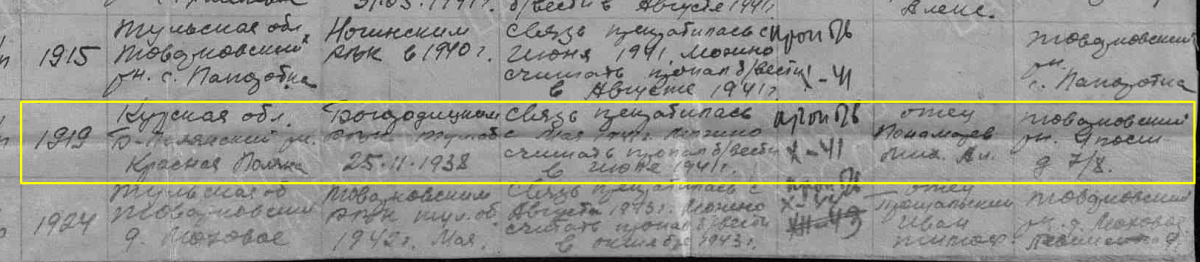 31.03.1941г. б/вести в Августе 1941г. Алекс.
1915 Тульская обл. Товарковский рн. с. Папоротка Ногинским РВК в 1940г. Связь прекратилась с Июня 1941. Можно считать пропал б/вести в Августе 1941г. проп б/в X-41 Товарковский рн. с. Папоротка
1919 Курская обл. Б-Полянский рн. Красная Поляна Богородицким РВК Тул. об. 25.11.1938 Связь прекратилась с Мая 1941г. Можно считать пропал б/вести в Июне 1941г. проп б/в X-41 отец Товарковский рн. д 7/8.
1924 Тульская об. Товарковский д. Моховое Товарковским РВК тул. об. 1942г. Мая. Связь прекратилась с Августа 1943г. Можно считать пропал б/вести в октябре 1943г. проп б/в отец Иван Товарковский рн. д. Моховое